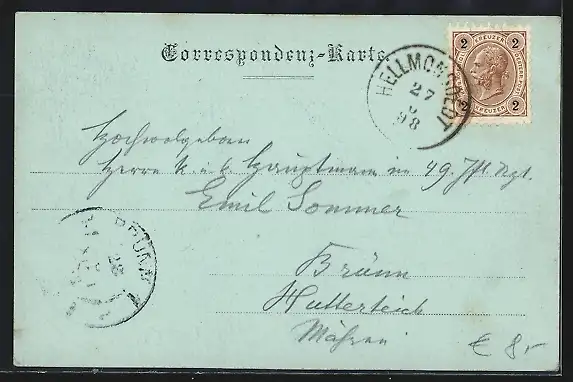 Correspondenz-Karte.
HELLMONSOEDT
27
98
2 KREUZER 2
2 KREUZER 2
Hochwolgeboren
Herrn k. u. k. Hauptmann im 49. Jft. Rgt.
Emil Sommer
BRÜNN
Brünn
Hutterteich
Mähren
€ 8,-